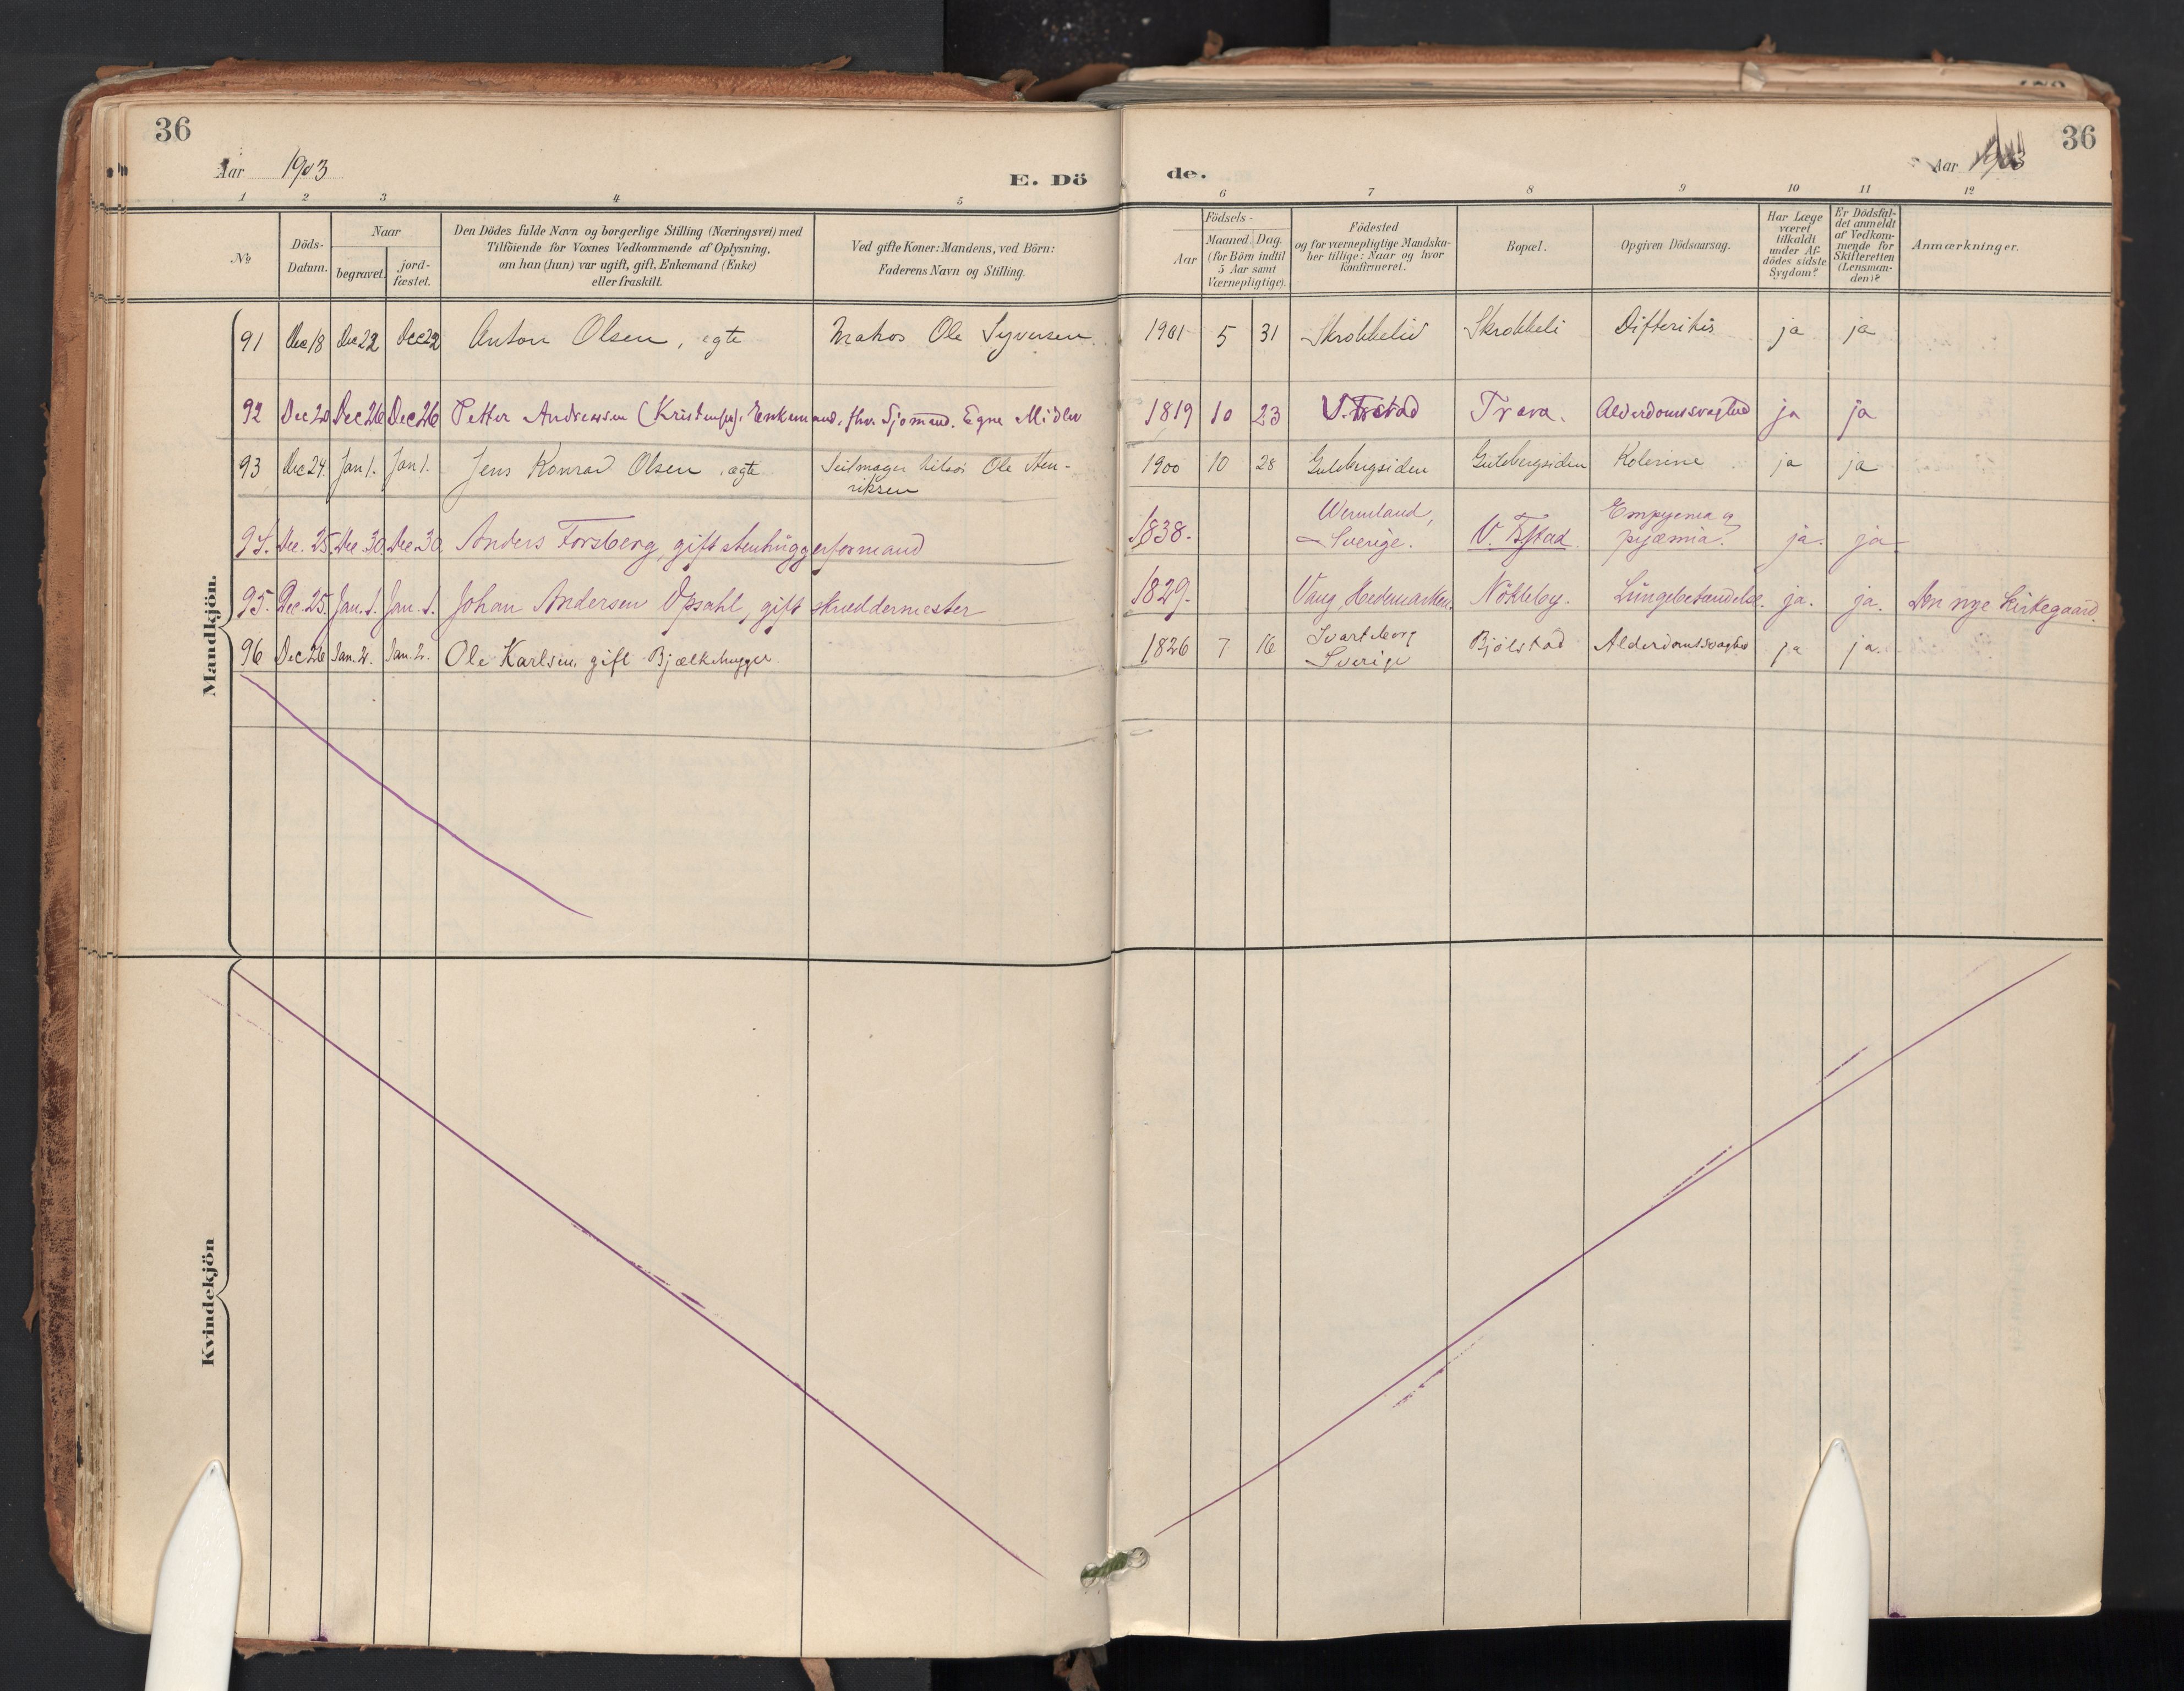 36
Aar 1903
E. Dö
1 2 3 4 5
№
Döds-
Datum.
Naar
begravet.
jord-
fæstet.
Den Dödes fulde Navn og borgerlige Stilling (Næringsvei) med
Tilföiende for Voxnes Vedkommende af Oplysning,
om han (hun) var ugift, gift, Enkemand (Enke)
eller fraskilt.
Ved gifte Koner: Mandens, ved Börn:
Faderens Navn og Stilling.
Mandkjön.
91 Dec 18 Dec 22 Dec 22 Anton Olsen, egte Matros Ole Syversen
92 Dec 20 Dec 26 Dec 26 Petter Andreassen Enkemand, fhv. Sjømand. Egne Midler
93 Dec 24. Jan 1. Jan 1. Jens Konrad Olsen, ægte Seilmager Ole Hen-
riksen
94. Dec. 25. Dec 30. Dec. 30. Anders Forsberg, gift stenhuggerformand
95. Dec. 25. Jan. 1. Jan. 1. Johan Andersen Opsahl, gift skræddermester
96 Dec 26 Jan. 2. Jan. 2. Ole Karlsen, gift Bjælkehugger
Kvindekjön
36
Aar 1903
de.
6 7 8 9 10 11 12
Födsels-
Aar
Maaned. Dag.
(for Börn indtil
5 Aar samt
Værnepligtige).
Födested
og for værnepligtige Mandska-
ber tillige: Naar og hvor
konfirmeret.
Bopæl.
Opgiven Dödsaarsag.
Har Læge
været
tilkaldt
under Af-
dödes sidste
Sygdom?
Er Dödsfal-
det anmeldt
af Vedkom-
mende for
Skifteretten
(Lensman-
den)?
Anmærkninger.
1901 5 31 Skrobbeli Difteritis ja ja
1819 10 23 V. Frstad Trara. Alderdomssvaghed ja ja
1900 10 28 Gulbergsiden Gulbergsiden Kolerine ja ja
1838. Wermland,
Sverige. V. Fstad. Empyema og
pyæmia. ja. ja
1829. Vang, Hedemarken. Nökleby. Lungebetændelse. ja. ja. Den nye kirkegaard.
1826 7 16 Svarteborg
Sverige Bjölstad Alderdomssvaghed ja ja.